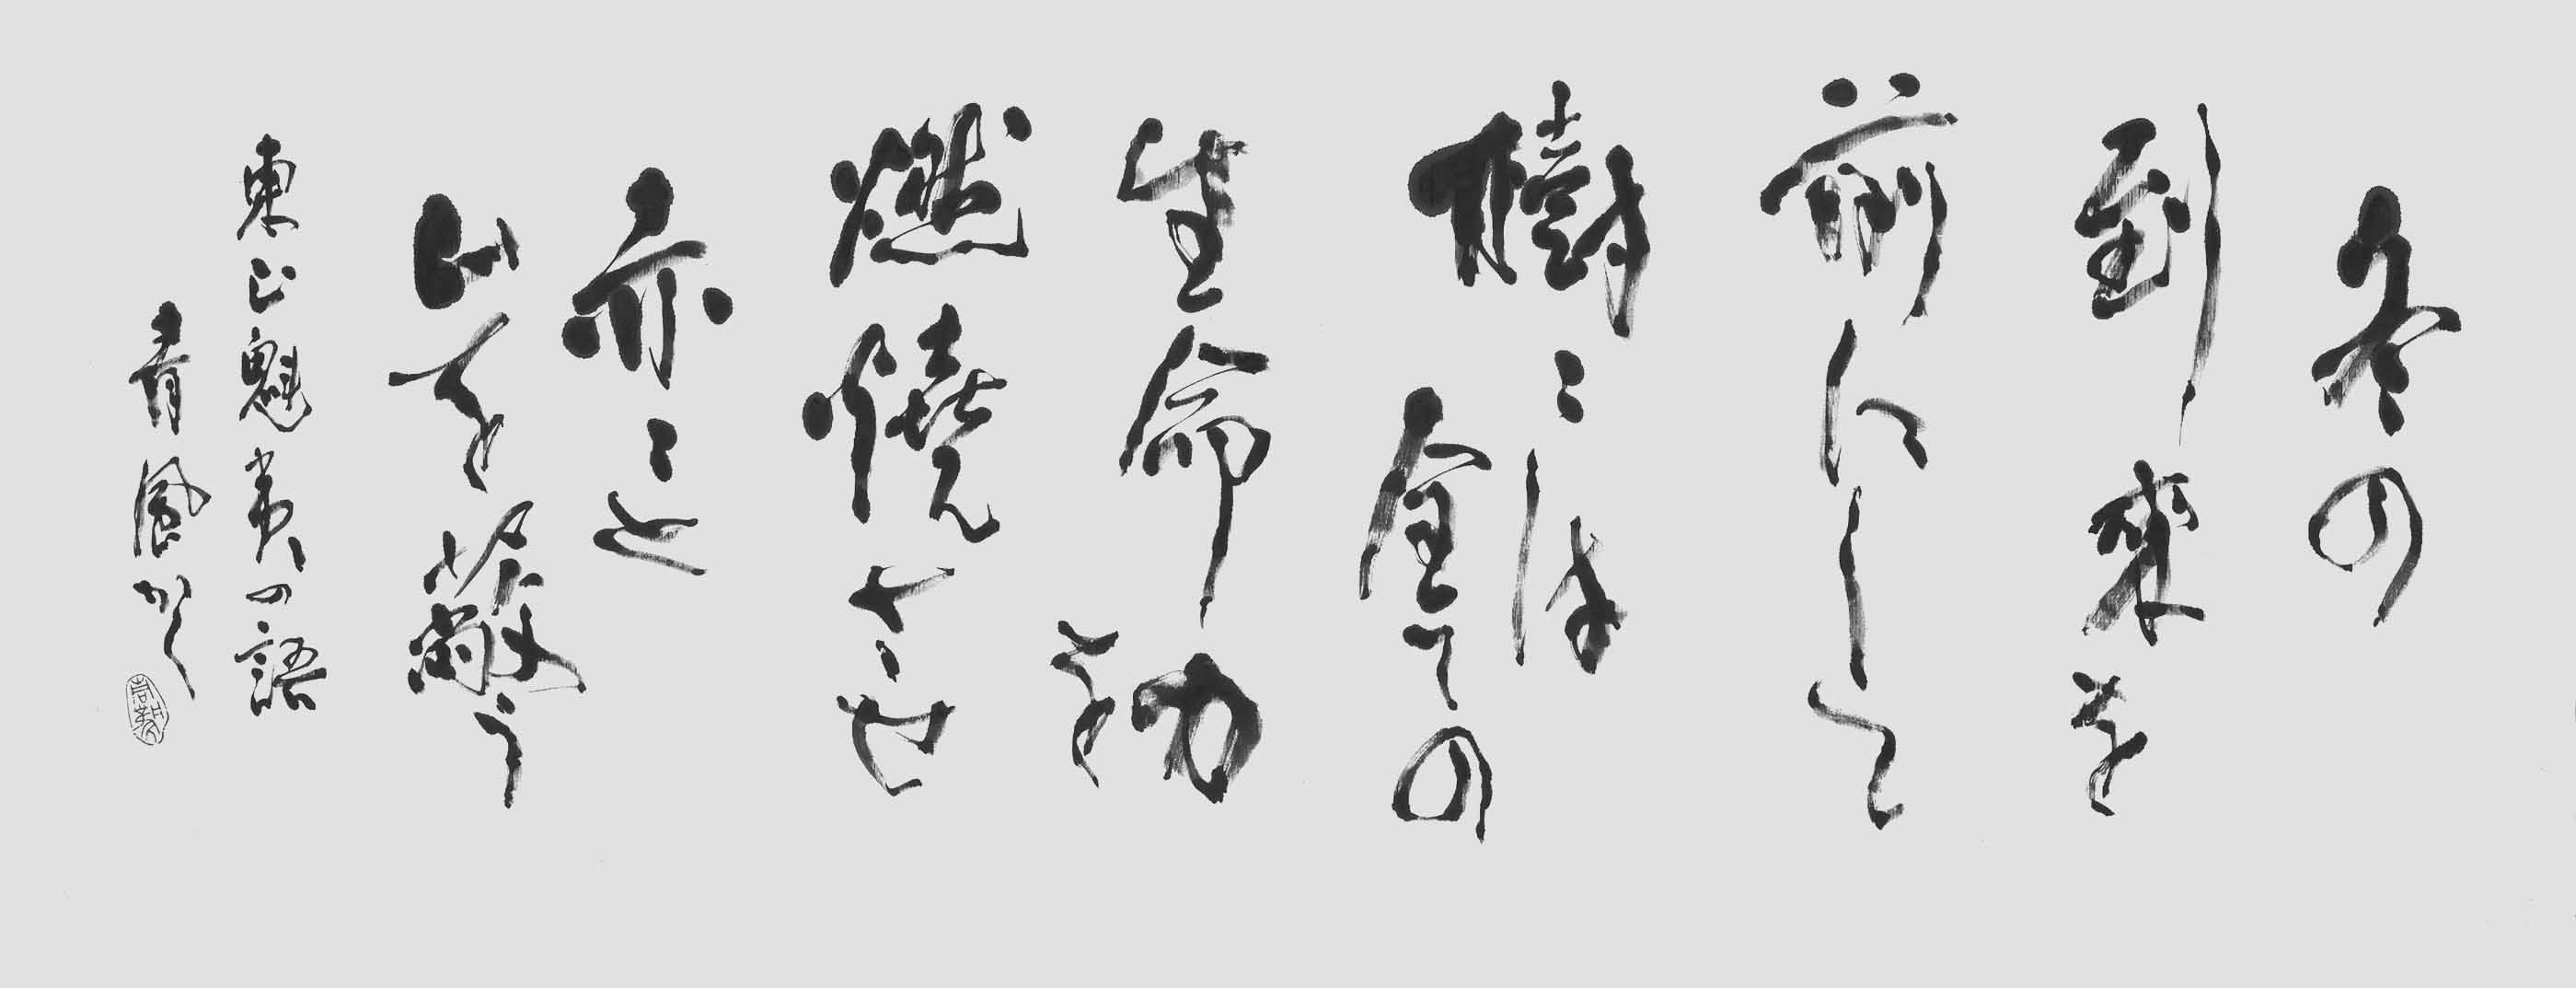 冬の
到來を
前にして
樹々は
全ての
生命力を
燃燒させ
赤々と
山を蔽う
東山魁夷の語
青風かく